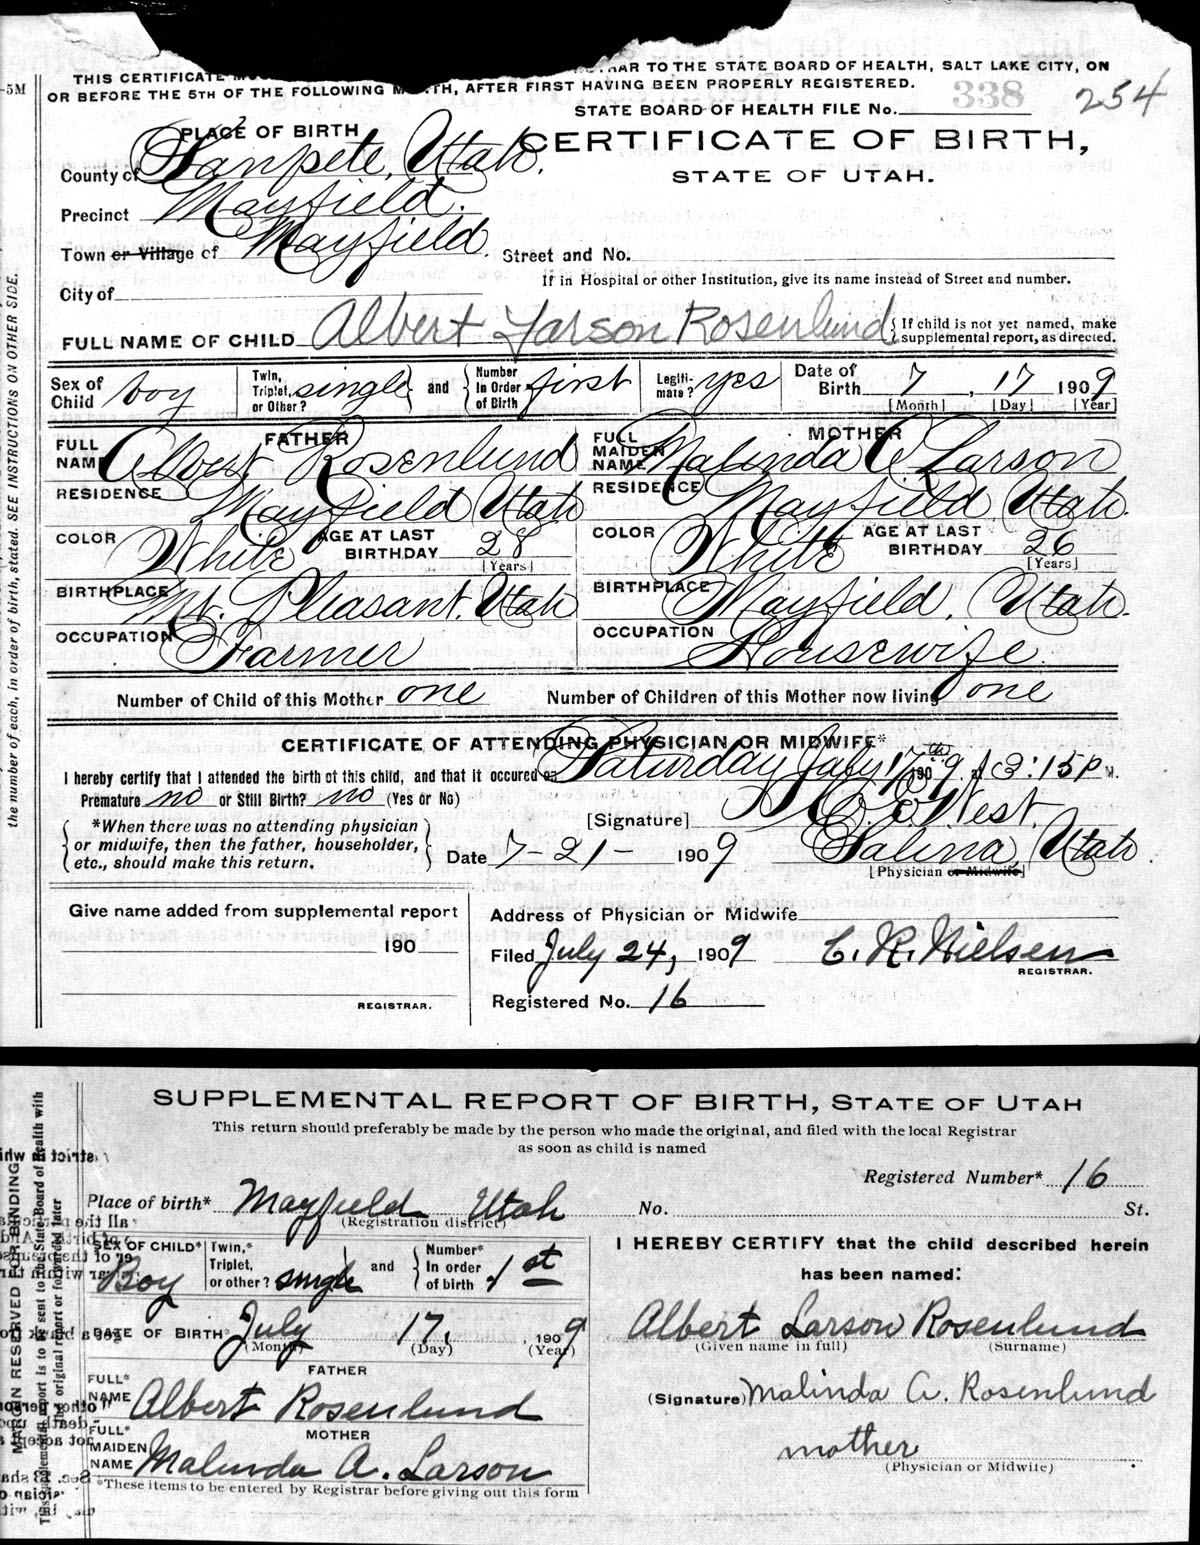 THIS CERTIFICATE TRAR TO THE STATE BOARD OF HEALTH, SALT LAKE CITY, ON
OR BEFORE THE 5TH OF THE FOLLOWING MONTH, AFTER FIRST HAVING BEEN PROPERLY REGISTERED.
-5M
STATE BOARD OF HEALTH FILE No. 338 254
PLACE OF BIRTH
CERTIFICATE OF BIRTH,
STATE OF UTAH.
County of Sanpete, Utah.
Precinct Mayfield.
Town or Village of Mayfield. Street and No.
If in Hospital or other Institution, give its name instead of Street and number.
City of
FULL NAME OF CHILD Albert Larson Rosenlund { If child is not yet named, make supplemental report, as directed.
Sex of Child boy Twin, Triplet, or Other? single and Number In Order of Birth first Legiti-mate? yes Date of Birth 7, 17 1909
[Month] [Day] [Year]
FATHER MOTHER
FULL NAME Albert Rosenlund FULL MAIDEN NAME Malinda A Larson
RESIDENCE Mayfield Utah RESIDENCE Mayfield Utah.
COLOR White AGE AT LAST BIRTHDAY 28 [Years] COLOR White AGE AT LAST BIRTHDAY 26 [Years]
BIRTHPLACE Mt. Pleasant. Utah BIRTHPLACE Mayfield, Utah.
OCCUPATION Farmer OCCUPATION Housewife.
Number of Child of this Mother one Number of Children of this Mother now living one
CERTIFICATE OF ATTENDING PHYSICIAN OR MIDWIFE*
I hereby certify that I attended the birth of this child, and that it occured on Saturday July 17th 1909 at 3:15 P M.
Premature no or Still Birth? no (Yes or No)
[Signature] West.
{ *When there was no attending physician or midwife, then the father, householder, etc., should make this return. } Date 7-21- 1909 Salina, Utah.
[Physician or Midwife]
Give name added from supplemental report
190
REGISTRAR.
Address of Physician or Midwife
Filed July 24, 1909 C. R. Nielsen
REGISTRAR.
Registered No. 16
the number of each, in order of birth, stated. SEE INSTRUCTIONS ON OTHER SIDE.
SUPPLEMENTAL REPORT OF BIRTH, STATE OF UTAH
This return should preferably be made by the person who made the original, and filed with the local Registrar
as soon as child is named
Registered Number* 16
Place of birth* Mayfield Utah No. St.
(Registration district)
SEX OF CHILD* Boy Twin,* Triplet, or other? single and Number* In order of birth 1st
DATE OF BIRTH* July 17, 1909
(Month) (Day) (Year)
FATHER
FULL* NAME Albert Rosenlund
MOTHER
FULL* MAIDEN NAME Malinda A. Larson
*These items to be entered by Registrar before giving out this form
I HEREBY CERTIFY that the child described herein
has been named:
Albert Larson Rosenlund
(Given name in full) (Surname)
(Signature) Malinda A. Rosenlund
mother
(Physician or Midwife)
MARGIN RESERVED FOR BINDING
This supplemental report is to be sent to the State Board of Health with
the original report or forwarded later